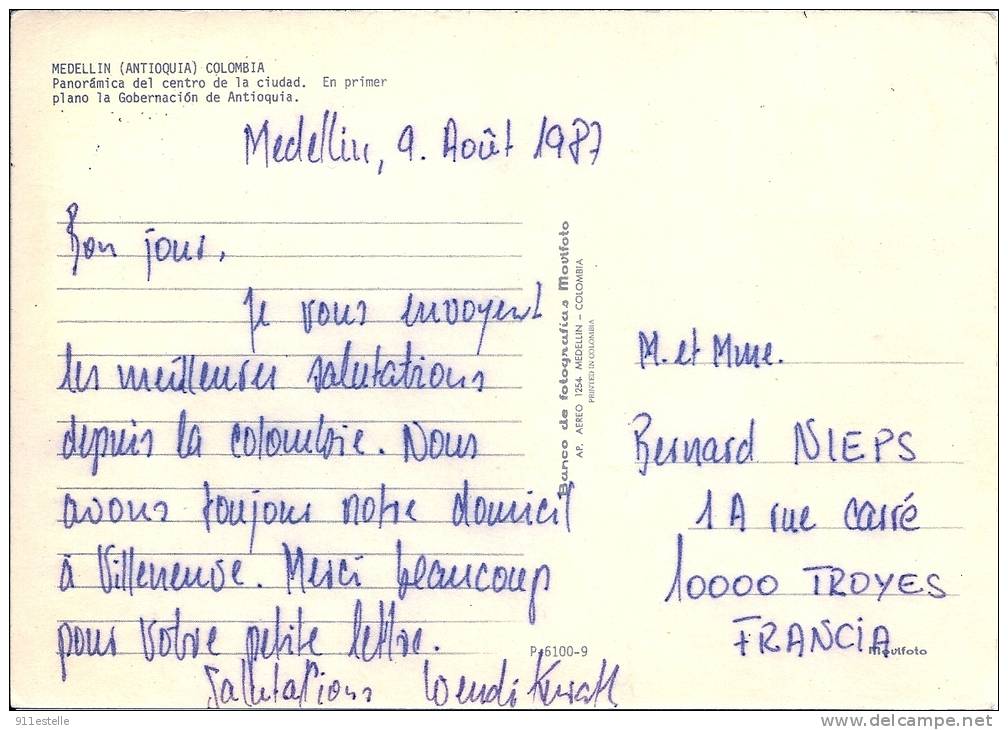 MEDELLIN (ANTIOQUIA) COLOMBIA
Panorámica del centro de la ciudad. En primer
plano la Gobernación de Antioquia.
Medellin, 9. Août 1987
Bon jour,
Je vous envoyent
les meilleures salutations
depuis la colombie. Nous
avons toujour notre domicil
à Villeneuve. Merci beaucoup
pour votre petite lettre.
Salutations Wendi
Banco de fotografias Movifoto
AP. AEREO 1254 MEDELLIN - COLOMBIA
PRINTED IN COLOMBIA
M. et Mme.
Bernard NIEPS
1A rue carré
10000 TROYES
FRANCIA
P-6100-9
Movifoto
911estelle
www.delcampe.net